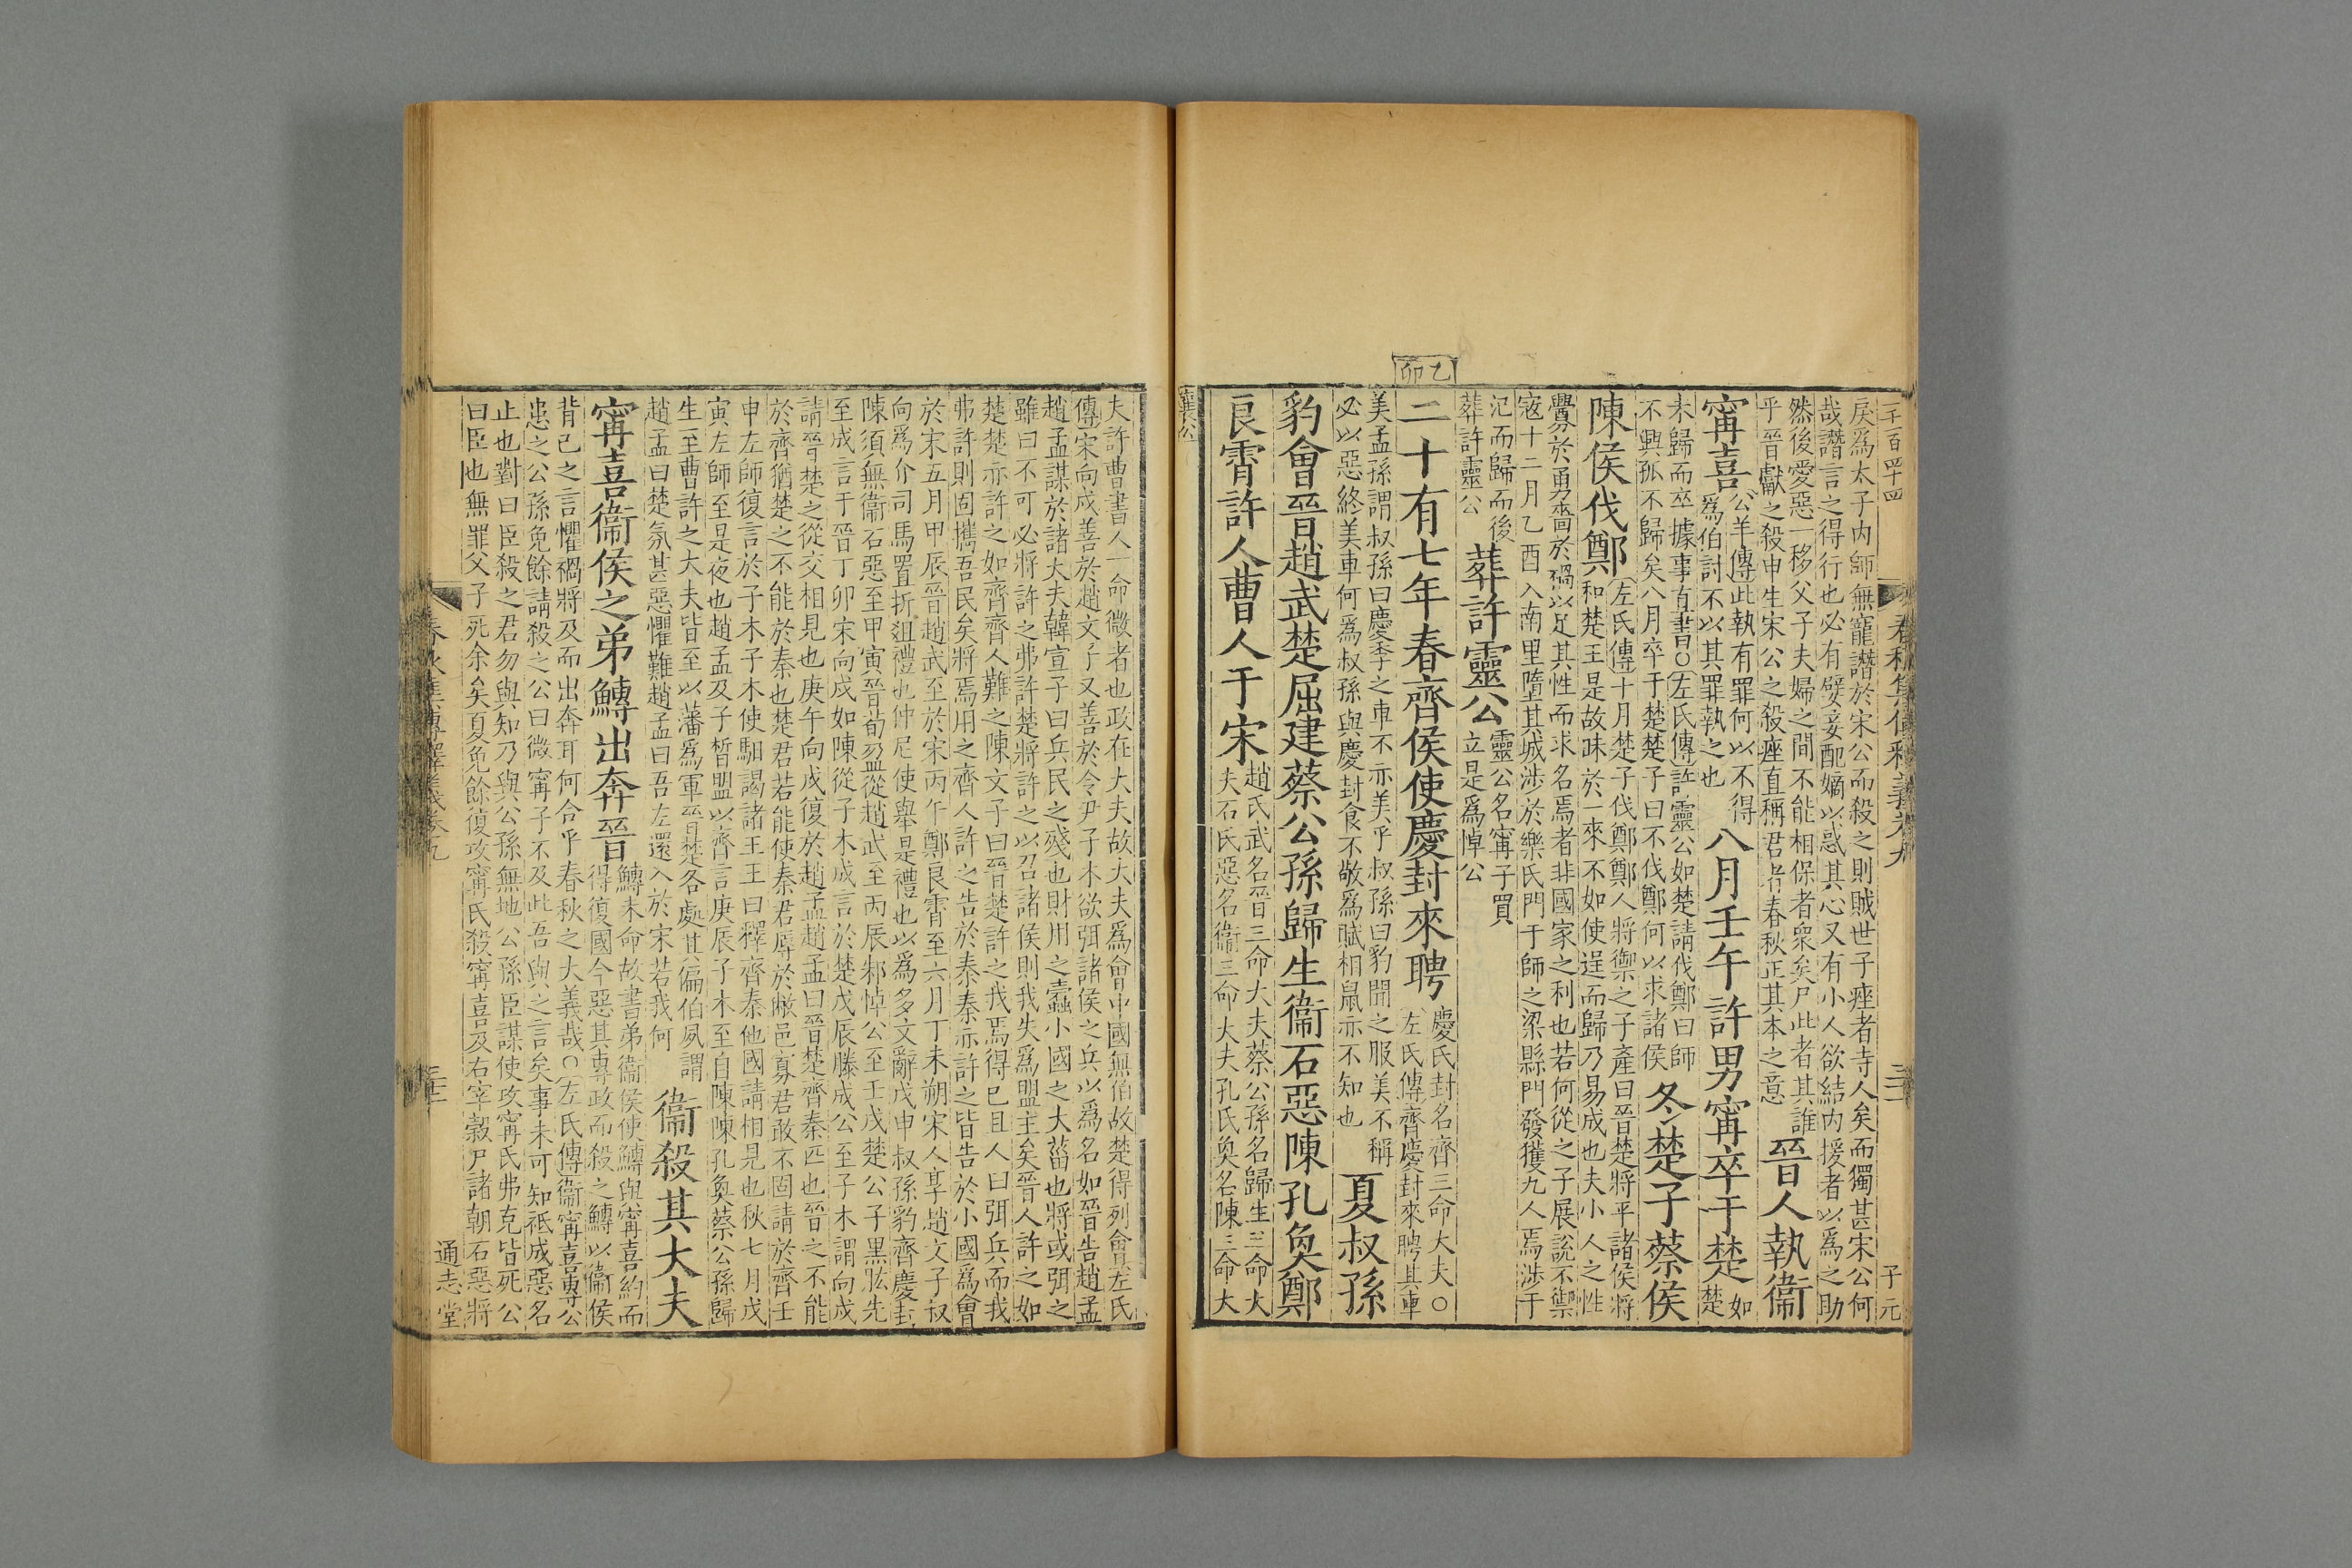 二千百四十四
春秋集傳釋義卷九
三十一
子元
戾爲太子內師無寵譖於宋公而殺之則賊世子痤者寺人矣而獨甚宋公何
哉譖言之得行也必有嬖妾配嫡以惑其心又有小人欲結內援者以爲之助
然後愛惡一移父子夫婦之間不能相保者衆矣尸此者其誰
乎晉獻之殺申生宋公之殺痤直稱君者春秋正其本之意
晉人執衞
甯喜
公羊傳此執有罪何以不得
爲伯討不以其罪執之也
八月壬午許男甯卒于楚
如楚
未歸而卒據事直書○左氏傳許靈公如楚請伐鄭曰師
不興孤不歸矣八月卒于楚楚子曰不伐鄭何以求諸侯
冬楚子蔡侯
陳侯伐鄭
左氏傳十月楚子伐鄭鄭人將禦之子產曰晉楚將平諸侯將
和楚王是故昧於一來不如使逞而歸乃易成也夫小人之性
釁於勇嗇於禍以足其性而求名焉者非國家之利也若何從之子展說不禦
寇十二月乙酉入南里墮其城涉於樂氏門于師之梁縣門發獲九人焉涉于
氾而歸而後
葬許靈公
葬許靈公
靈公名甯子買
立是爲悼公
乙卯
二十有七年春齊侯使慶封來聘
慶氏封名齊三命大夫○
左氏傳齊慶封來聘其車
美孟孫謂叔孫曰慶季之車不亦美乎叔孫曰豹聞之服美不稱
必以惡終美車何爲叔孫與慶封食不敬爲賦相鼠亦不知也
夏叔孫
豹會晉趙武楚屈建蔡公孫歸生衞石惡陳孔奐鄭
良霄許人曹人于宋
趙氏武名晉三命大夫蔡公孫名歸生三命大
夫石氏惡名衞三命大夫孔氏奐名陳三命大
夫許曹書人一命微者也政在大夫故大夫爲會中國無伯故楚得列會左氏
傳宋向戌善於趙文子又善於令尹子木欲弭諸侯之兵以爲名如晉告趙孟
趙孟謀於諸大夫韓宣子曰兵民之殘也財用之蠹小國之大菑也將或弭之
雖曰不可必將許之弗許楚將許之以召諸侯則我失爲盟主矣晉人許之如
楚楚亦許之如齊齊人難之陳文子曰晉楚許之我焉得已且人曰弭兵而我
弗許則固攜吾民矣將焉用之齊人許之告於秦秦亦許之皆告於小國爲會
於宋五月甲辰晉趙武至於宋丙午鄭良霄至六月丁未朔宋人享趙文子叔
向爲介司馬置折俎禮也仲尼使舉是禮也以爲多文辭戊申叔孫豹齊慶封
陳須無衞石惡至甲寅晉荀盈從趙武至丙辰邾悼公至壬戌楚公子黑肱先
至成言于晉丁卯宋向戌如陳從子木成言於楚戊辰滕成公至子木謂向戌
請晉楚之從交相見也庚午向戌復於趙孟趙孟曰晉楚齊秦匹也晉之不能
於齊猶楚之不能於秦也楚君若能使秦君辱於敝邑寡君敢不固請於齊壬
申左師復言於子木子木使馹謁諸王王曰釋齊秦他國請相見也秋七月戊
寅左師至是夜也趙孟及子皙盟以齊言庚辰子木至自陳陳孔奐蔡公孫歸
生至曹許之大夫皆至以藩爲軍晉楚各處其偏伯夙謂
趙孟曰楚氛甚惡懼難趙孟曰吾左還入於宋若我何
衞殺其大夫
甯喜衞侯之弟鱄出奔晉
鱄未命故書弟衞侯使鱄與甯喜約而
得復國今惡其專政而殺之鱄以衞侯
背己之言懼禍將及而出奔耳何合乎春秋之大義哉○左氏傳衞甯喜專公
患之公孫免餘請殺之公曰微甯子不及此吾與之言矣事未可知祗成惡名
止也對曰臣殺之君勿與知乃與公孫無地公孫臣謀使攻甯氏弗克皆死公
曰臣也無罪父子死余矣夏免餘復攻甯氏殺甯喜及右宰穀尸諸朝石惡將
通志堂